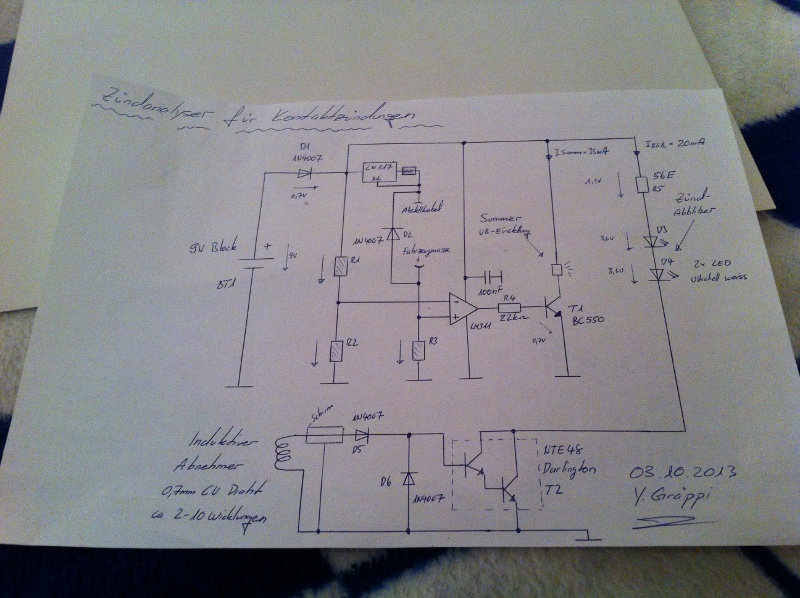 Zündanalyser für Kontaktzündungen
D1
1N4007
0,7V
LM317
Adj
Isumm = 35mA
IBlit. = 20mA
56E
R5
1,1V
Zünd-
Abblitzer
Summer
UB-Einstellung
1N4007
D2
Fahrzeugmasse
9V Block
+
9V
BT1
R1
3,6V
D3
3,6V
D4
2x LED
100nF
R4
22k
T1
BC550
LM311
0,7V
R2
R3
Schirm
1N4007
D5
Induktiver
Abnehmer
0,7mm CU Draht
ca. 2-10 Wicklungen
D6
1N4007
NTE48
Darlington
T2
03.10.2013
Y. Gräppi